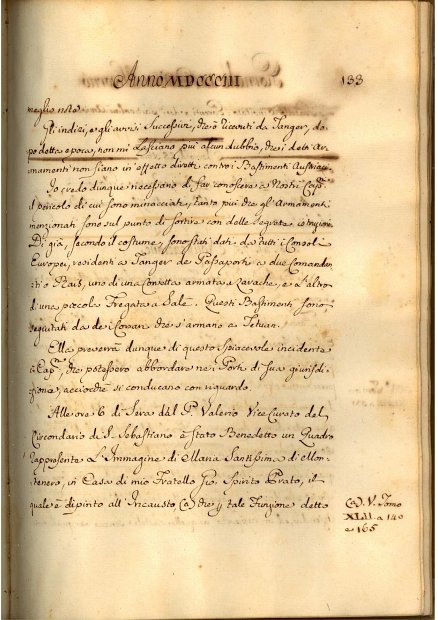 Anno MDCCCIII
133
meglio note
Gli indizj, e gli avvisi successivi, che ò ricevuti da Tanger, do,
po detta epoca, non mi lasciano più alcun dubbio, che i detti Ar,
namenti non siano in effetto diretti contro i Bastimenti Austriaci
Io credo dunque necessario di far conoscere a Nostri Cap.ⁿⁱ
il pericolo di cui sono minacciati, tanto più che gl'Armamenti
menzionati sono sul punto di sortire con delle segrete istruzioni
Di già, secondo il costume, sono stati dati da tutti i Consoli
Europei, residenti a Tanger de Passaporti a due Comandan
ti o Rais, uno di una Corvetta armata a Larache, e l'altro
di una piccola Fregata a Salè. Questi Bastimenti sono
seguitati da de i Corsari che s'armano a Tetuan.
Ella preverrà dunque di questo spiacevole incidente
i Cap.ⁿⁱ, che potessero abbordare ne i Porti di sua giurisdi,
zione, acciochè si conducano con riguardo.
Alle ore 6 di Sera dal P. Valerio Vice Curato del
Circondario di S. Sebastiano è stato Benedetto un Quadro
rappresente L'Immagine di Maria Santissima di Mon,
tenero, in Casa di mio Fratello Gio. Spirito Prato, il
quale è dipinto all'Incausto (a) che p tale Funzione detto
(a) V. Tomo
XLII. a 140
e 165